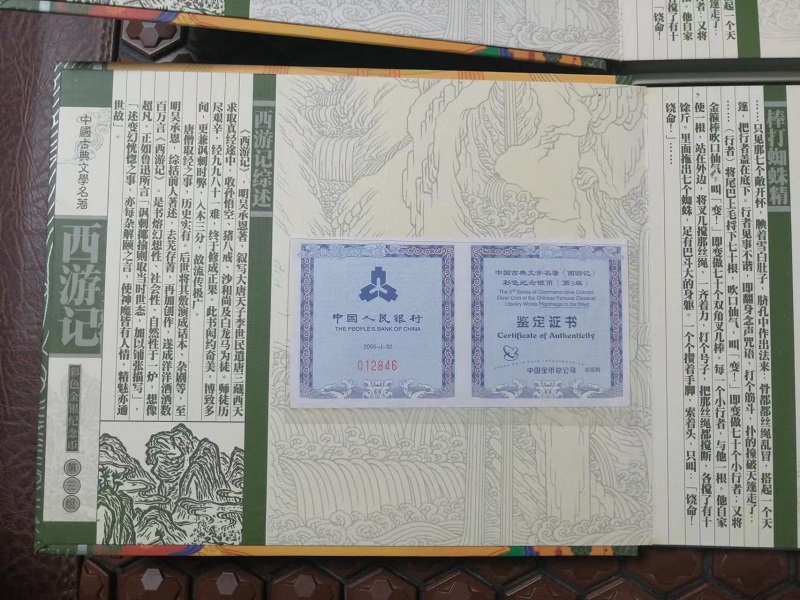 中國古典文學名著
西游记
彩色金银纪念币
第三组
西游记综述
《西游记》，明吴承恩著，叙写大唐天子李世民遣唐三藏西天
求取真经途中，收孙悟空、猪八戒、沙和尚及白龙马为徒，师徒历
尽艰辛，经九九八十一难，终于修成正果。此书闳约奇美，博致多
闻，更兼讽刺时弊，入木三分，故流传极广。
唐僧取经之事，历史实有，后世将其敷演成话本、杂剧等，至
明吴承恩，综括前人著述，去芜存菁，再加创作，遂成洋洋洒洒数
百万言《西游记》。是书熔幻想性、社会性、自然性于一炉，想像
超凡。正如鲁迅所言「讽刺揶揄则取当时世态，加以铺张描写」，
「述变幻恍惚之事，亦每杂解颐之言，使神魔皆有人情，精魅亦通
世故」。
中国人民银行
THE PEOPLE'S BANK OF CHINA
2005-J-32
012846
中国古典文学名著《西游记》
彩色纪念银币（第3组）
The 3rd Series of Commemorative Colored
Silver Coin of the Chinese Famous Classical
Literary Works Pilgrimage to the West
鉴定证书
Certificate of Authenticity
中国金币总公司
棒打蜘蛛精
……只见那七个敞开怀，腆着雪白肚子，脐孔中作出法来：骨都都丝绳乱冒，搭起一个天
篷，把行者盖在底下。行者见事不谐，即翻身念声咒语，打个筋斗，扑的撞破天篷走了；
……（行者）将尾巴上毛捋下七十根，吹口仙气，叫「变！」即变做七十个小行者；又将
金箍棒吹口仙气，叫「变！」即变做七十个双角叉儿棒。每一个小行者，与他一根。他自家
使一根，站在外边，将叉儿搅那丝绳，一齐着力，打个号子，把那丝绳都搅断，各搅了有十
馀斤。里面拖出七个蜘蛛，足有巴斗大的身躯。一个个攒着手脚，索着头，只叫：「饶命！
饶命！」